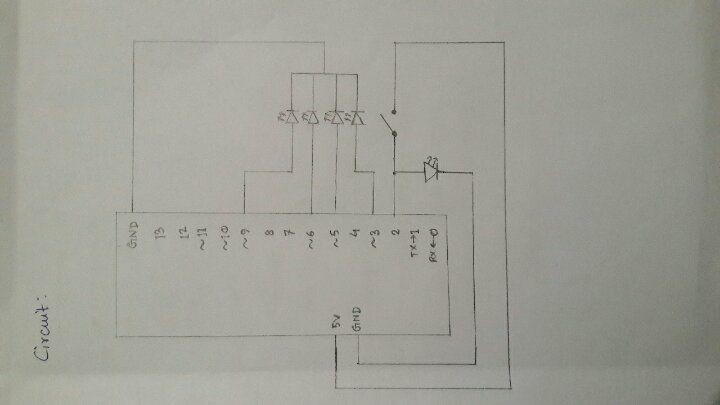 Circuit:
GND
13
12
~11
~10
~9
8
7
~6
~5
4
~3
2
TX→1
RX←0
5V
GND